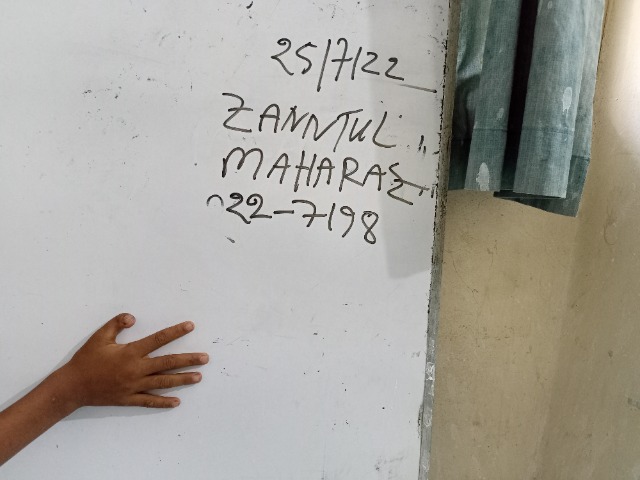 25/7/22
ZANNTUL
MAHARAZ
22-7198